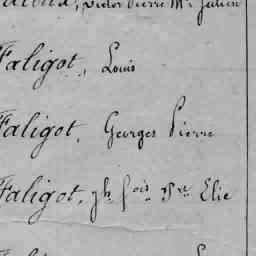 Victor Pierre M. Julien
Faligot, Louis
Faligot, Georges Pierre
Faligot, Jh fois Pre Elie